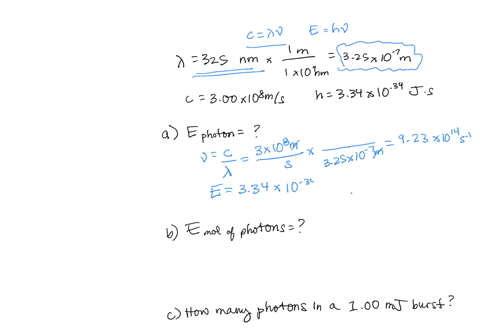 c=λν E=hν
λ = 325 nm × 1 m / 1×10⁹nm = 3.25×10⁻⁷m
c = 3.00×10⁸m/s h = 3.34×10⁻³⁴ J·s
a) E photon = ?
ν = c/λ = 3×10⁸m / s × / 3.25×10⁻⁷m = 9.23×10¹⁴ s⁻¹
E = 3.34 × 10⁻³⁴
b) E mol of photons = ?
c) How many photons in a 1.00 mJ burst?